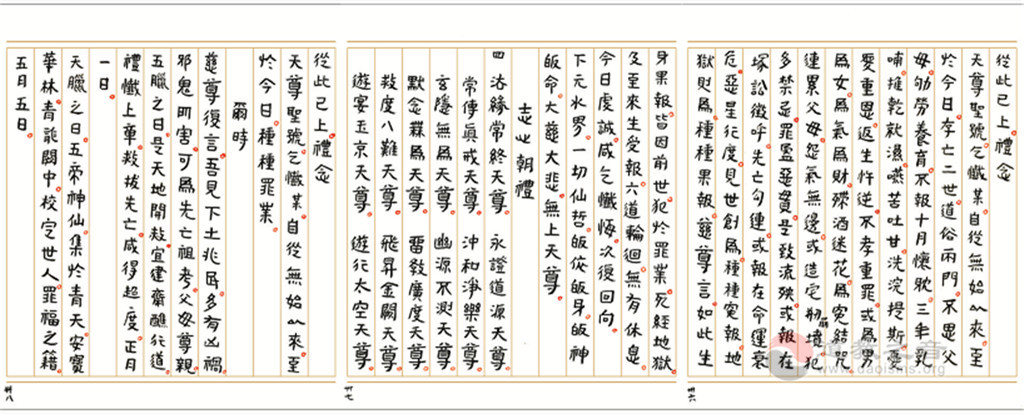 從此已上禮念
天尊聖號乞懺某自從無始以來至
於今日存亡二世道俗兩門不思父
母劬勞養育不報十月懷躭三年乳
哺推乾就濕嚥苦吐甘洗浣提斯憂
愛重恩返生忤逆不孝重罪或為男
為女為氣為財酒迷花為寃結咒
連累父母怨氣無邊或造宅墳犯
多禁忌罪盈惡貫是致流殃或報在
塚訟徵呼先亡勾連或報在命運衰
危惡星行度見世創為種種寃報地
獄則為種種果報慈尊言如此生
卅六
身果報皆因前世犯於罪業死經地獄
及至來生受報六道輪迴無有休息
今日虔誠咸乞懺悔次復回向
下元水界一切仙哲皈依皈身皈神
皈命大慈大悲無上天尊
志心朝禮
緣常終天尊 永證道源天尊
常傳真戒天尊 沖和淨樂天尊
玄隱無為天尊 幽源不測天尊
默念為天尊 教廣度天尊
救度八難天尊 飛昇金闕天尊
遊宴玉京天尊 遊行太空天尊
卅七
從此已上禮念
天尊聖號乞懺某自從無始以來至
於今日種種罪業
爾時
慈尊復言吾見下土兆民多有凶禍
邪鬼所害可為先亡祖考父母尊親
五臘之日是天地開赦宜建齋醮行道
禮懺上章救拔先亡咸得超度正月
一日
天臘之日五帝神仙集於青天安寶
華林青龍闕中校定世人罪福之籍
五月五日
卅八
道教之音
www.daoisms.org